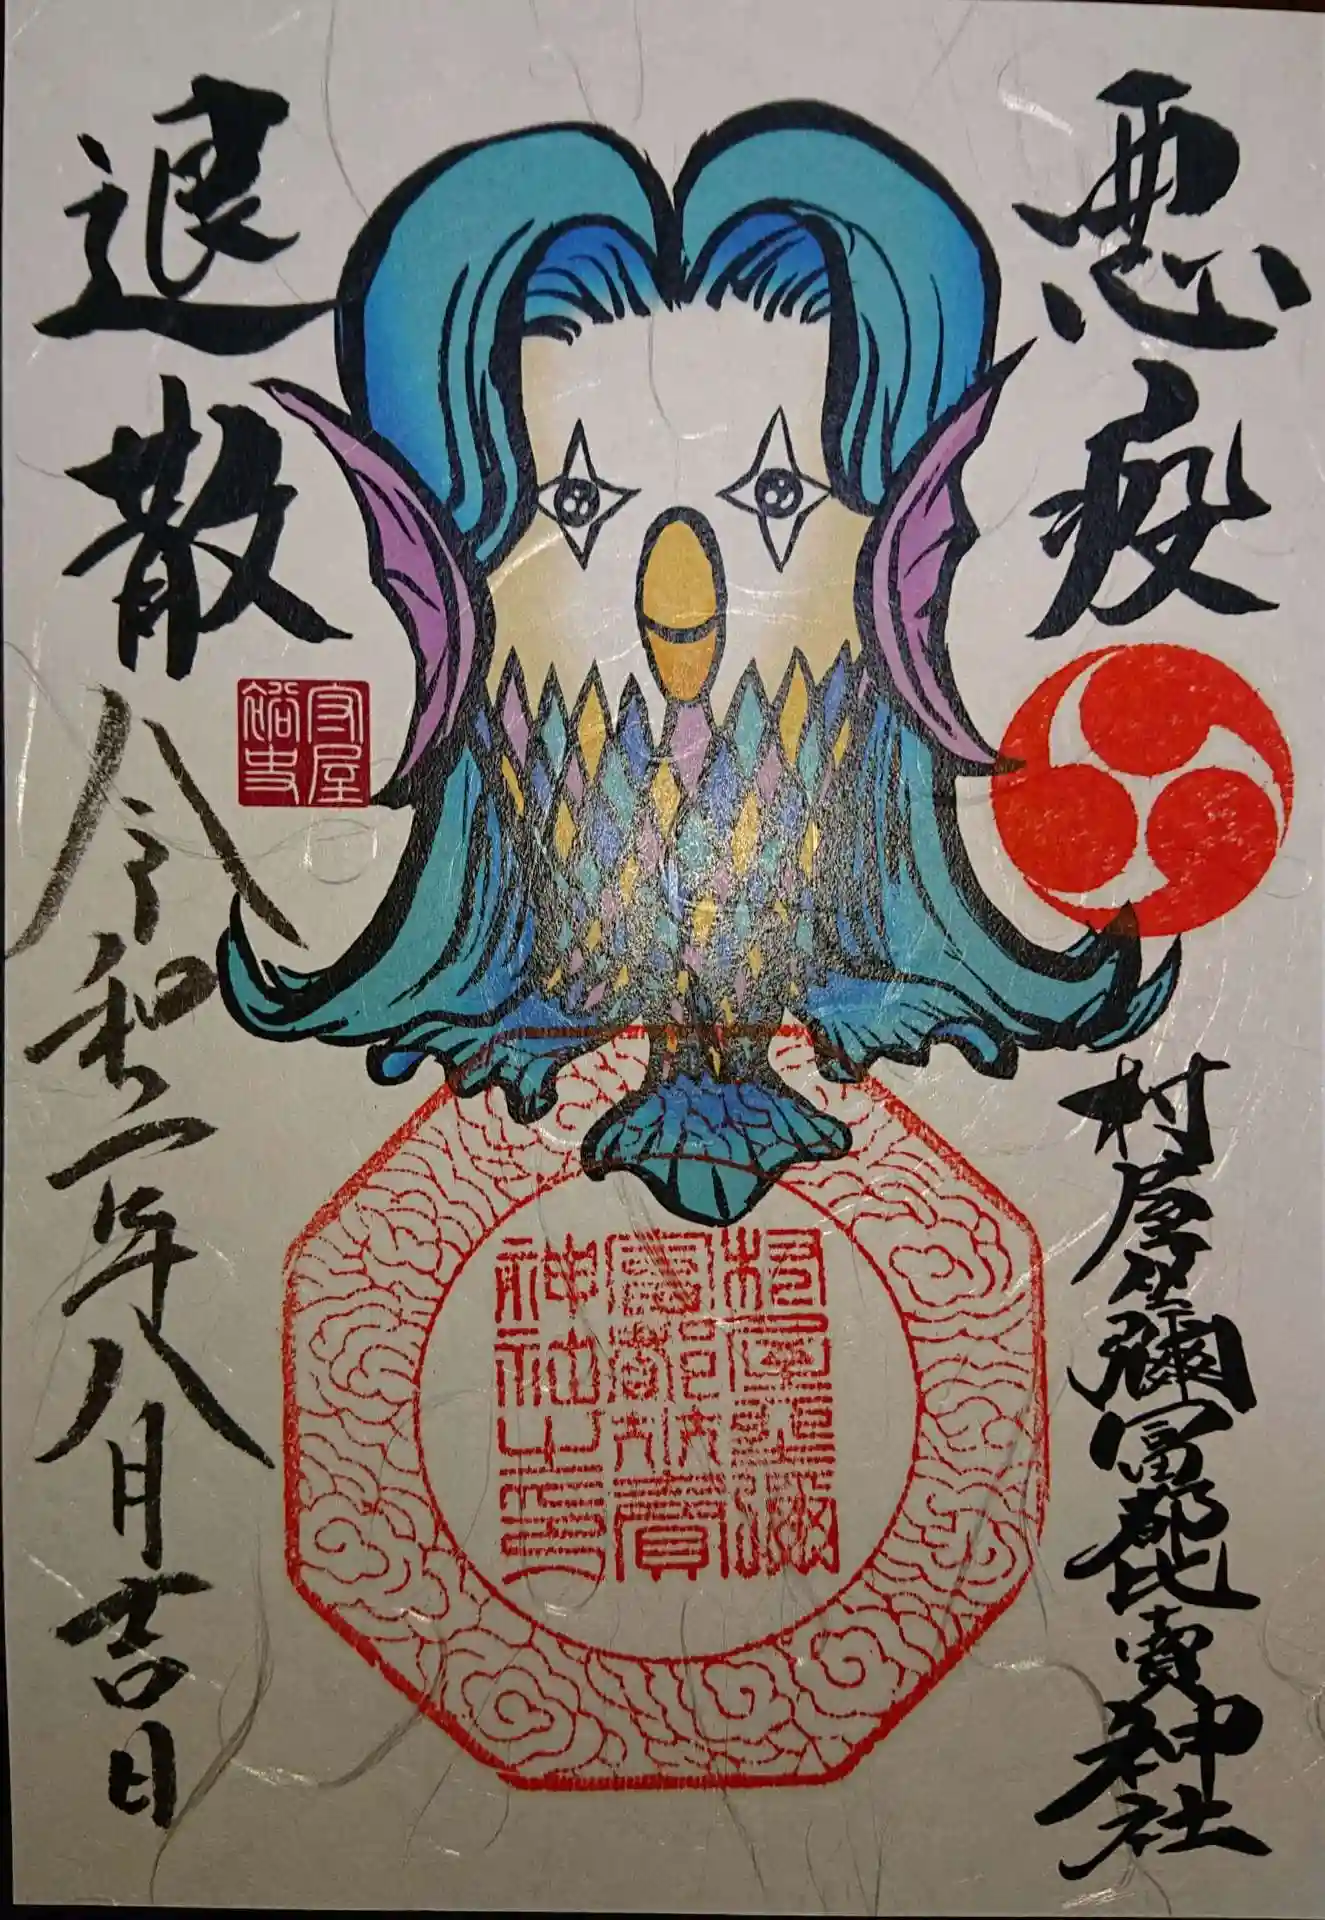 悪疫
退散
村屋坐彌冨都比賣神社
令和二年八月吉日
守屋
裕史
村屋坐彌
冨都比賣
神社之印